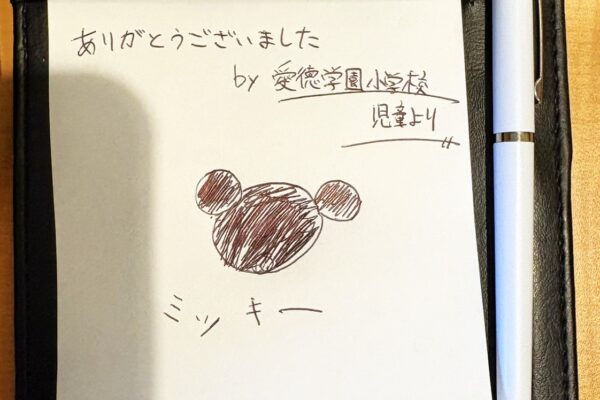 ありがとうございました
by 愛徳学園小学校
児童より
ミッキー